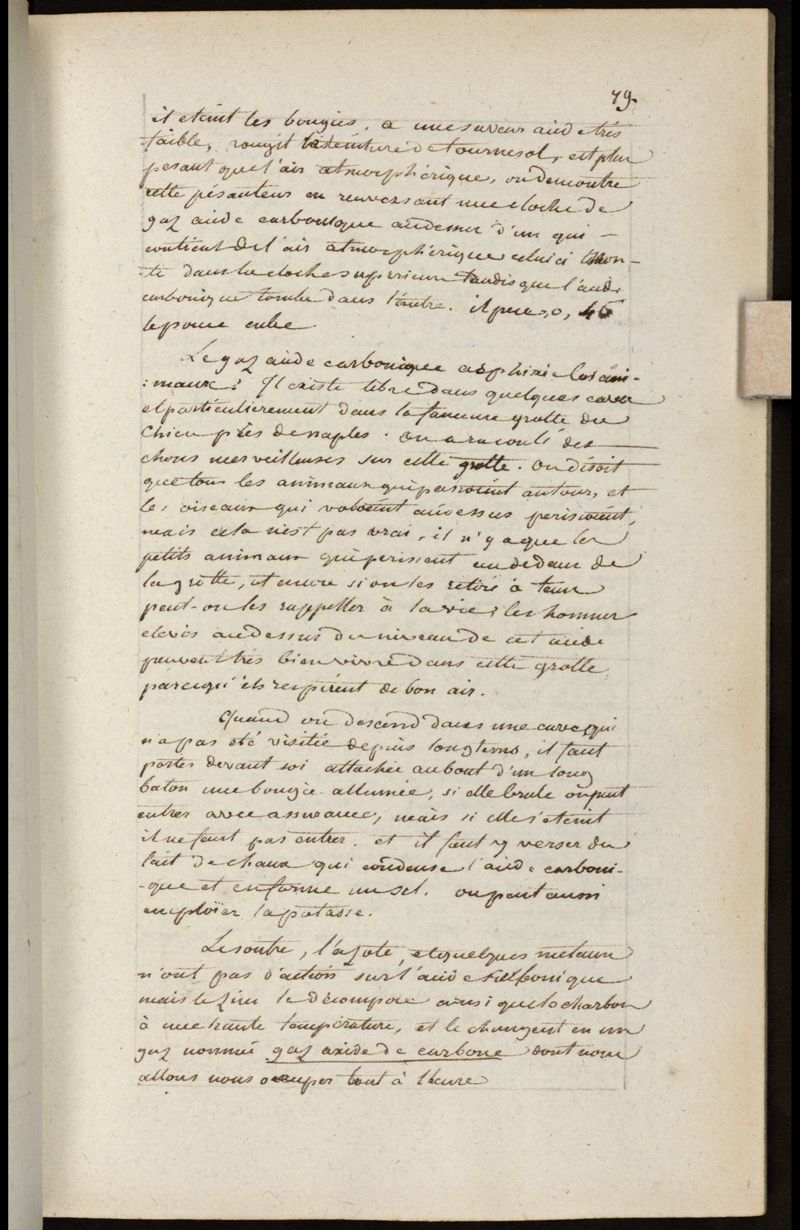 79.
il eteint les bougies, a une saveur acide très
faible, rougit la teinture de tournesol, est plus
pesant que l'air atmosphérique, on demontre
cette pésanteur en renversant une cloche de
gaz acide carbonique audessus d'un qui —
contient de l'air atmosphérique celui ci mon-
te dans la cloche superieure tandis que l'acide
carbonique tombe dans l'autre. il pese 0, 46
le pouce cube.
Le gaz acide carbonique asphixie les ani-
:maux: Il existe libre dans quelques caves
et particulierement dans la fameuse grotte du
Chien près de naples. on a raconté des
choses merveilleuses sur cette grotte. on disoit
que tous les animaux qui passoient autour, et
les oiseaux qui voloient audessus perissoient,
mais cela n'est pas vrai, il n'y a que les
petits animaux qui perissent au dedans de
la grotte, et encore si on les retire à tems
peut-on les rappeller à la vie; les hommes
elevés au dessus du niveau de cet acide
peuvent très bien vivre dans cette grotte
parcequ'ils respirent de bon air.
Quand on descend dans une cave qui
n'a pas été visitée depuis longtems, il faut
porter devant soi attachée au bout d'un long
baton une bougie allumée, si elle brule on peut
entrer avec assurance, mais si elle s'eteint
il ne faut pas entrer. et il faut y verser du
lait de chaux qui condense l'acide carboni-
-que et en forme un sel. on peut aussi
emploïer la potasse.
Le soufre, l'azote, et quelques metaux
n'ont pas d'action sur l'acide carbonique
mais le zinc le décompose ainsi que le charbon
à une haute température, et le changent en un
gaz nommé gaz oxide de carbone dont nous
allons nous occuper tout à l'heure